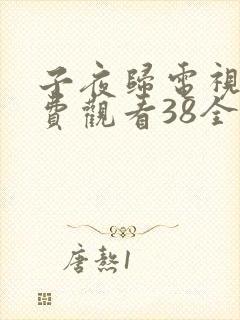 子夜歸電視
費觀看38全
唐熬1